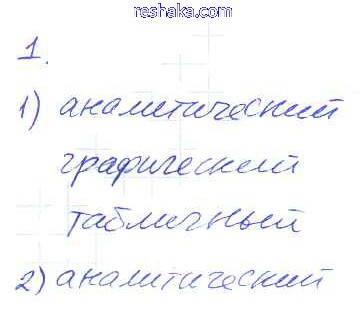 reshaka.com
1.
1) аналитический
графический
табличный
2) аналитический